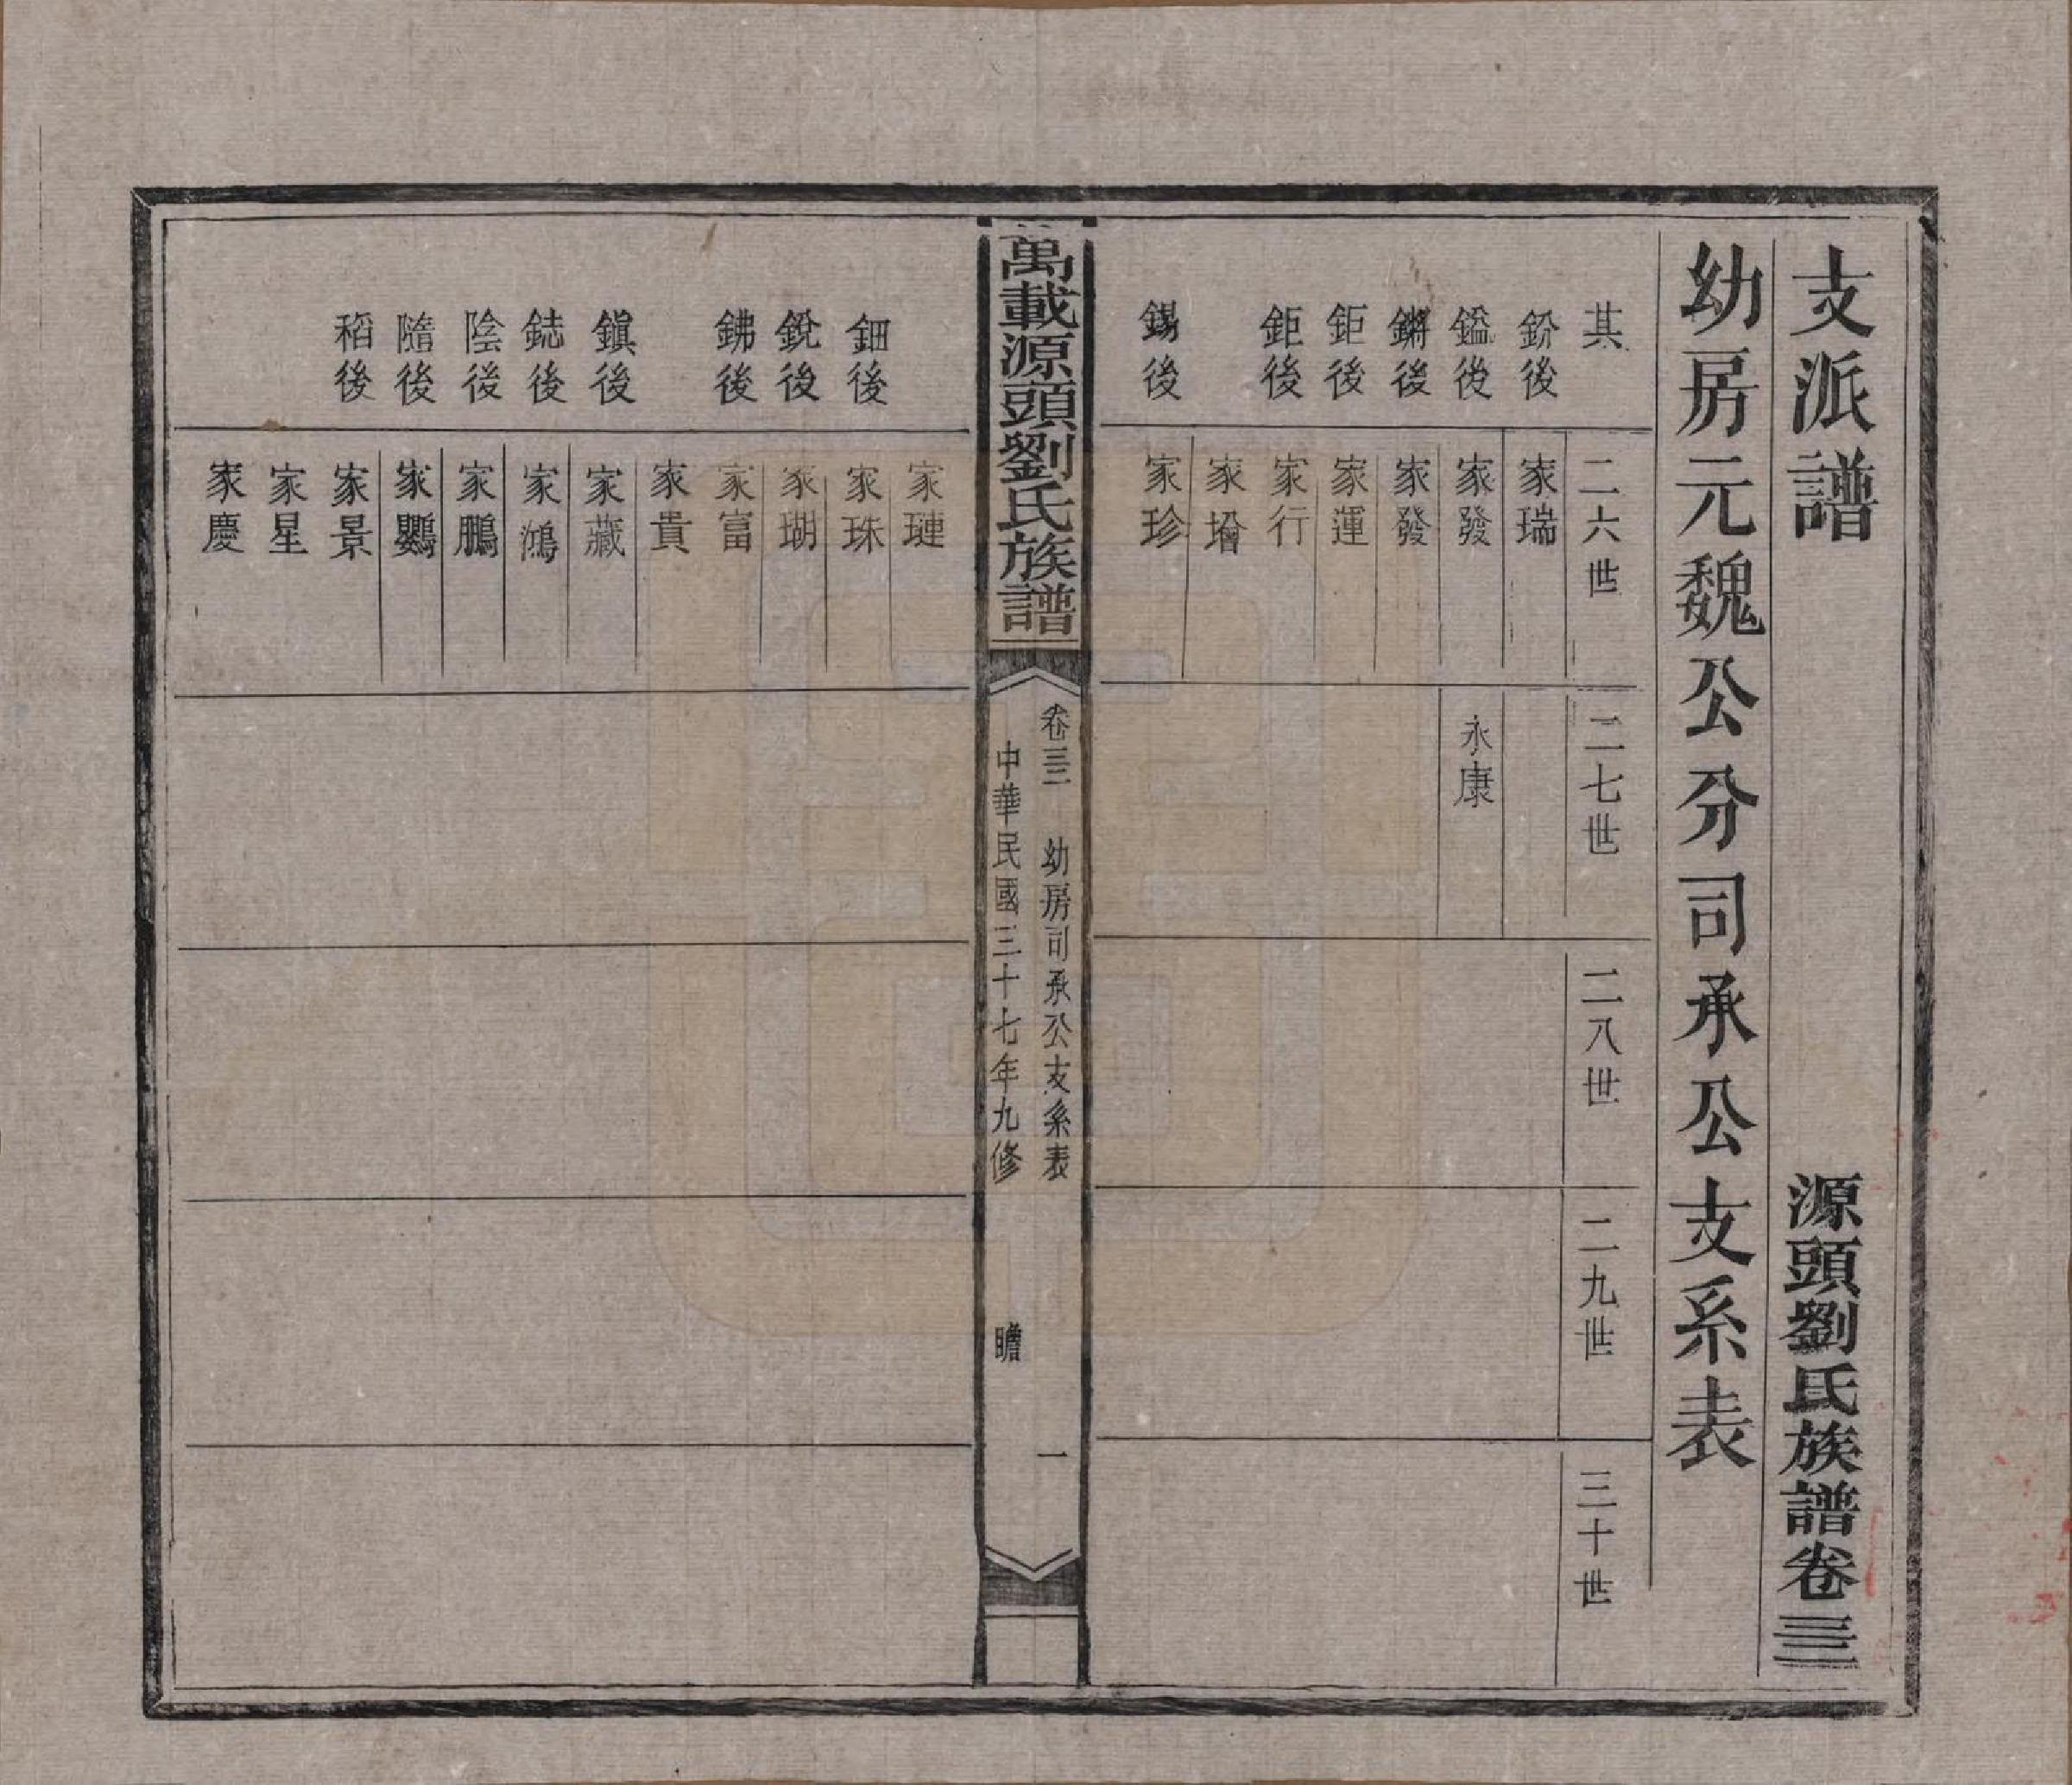 支派譜　源頭劉氏族譜卷三三
幼房元魏公分司承公支系表
其　二六世　二七世　二八世　二九世　三十世
鈖後　家瑞
鎰後　家發　永康
鏘後　家發
鉅後　家運
鉅後　家行
家增
錫後　家珍
萬載源頭劉氏族譜
卷三三　幼房司承公支系表　一
中華民國三十七年九修　瞻
家璉
鈿後　家珠
銳後　家瑚
鉘後　家富
家貴
鎮後　家藏
鋕後　家鴻
陰後　家鵬
隨後　家鸚
稻後　家景
家星
家慶